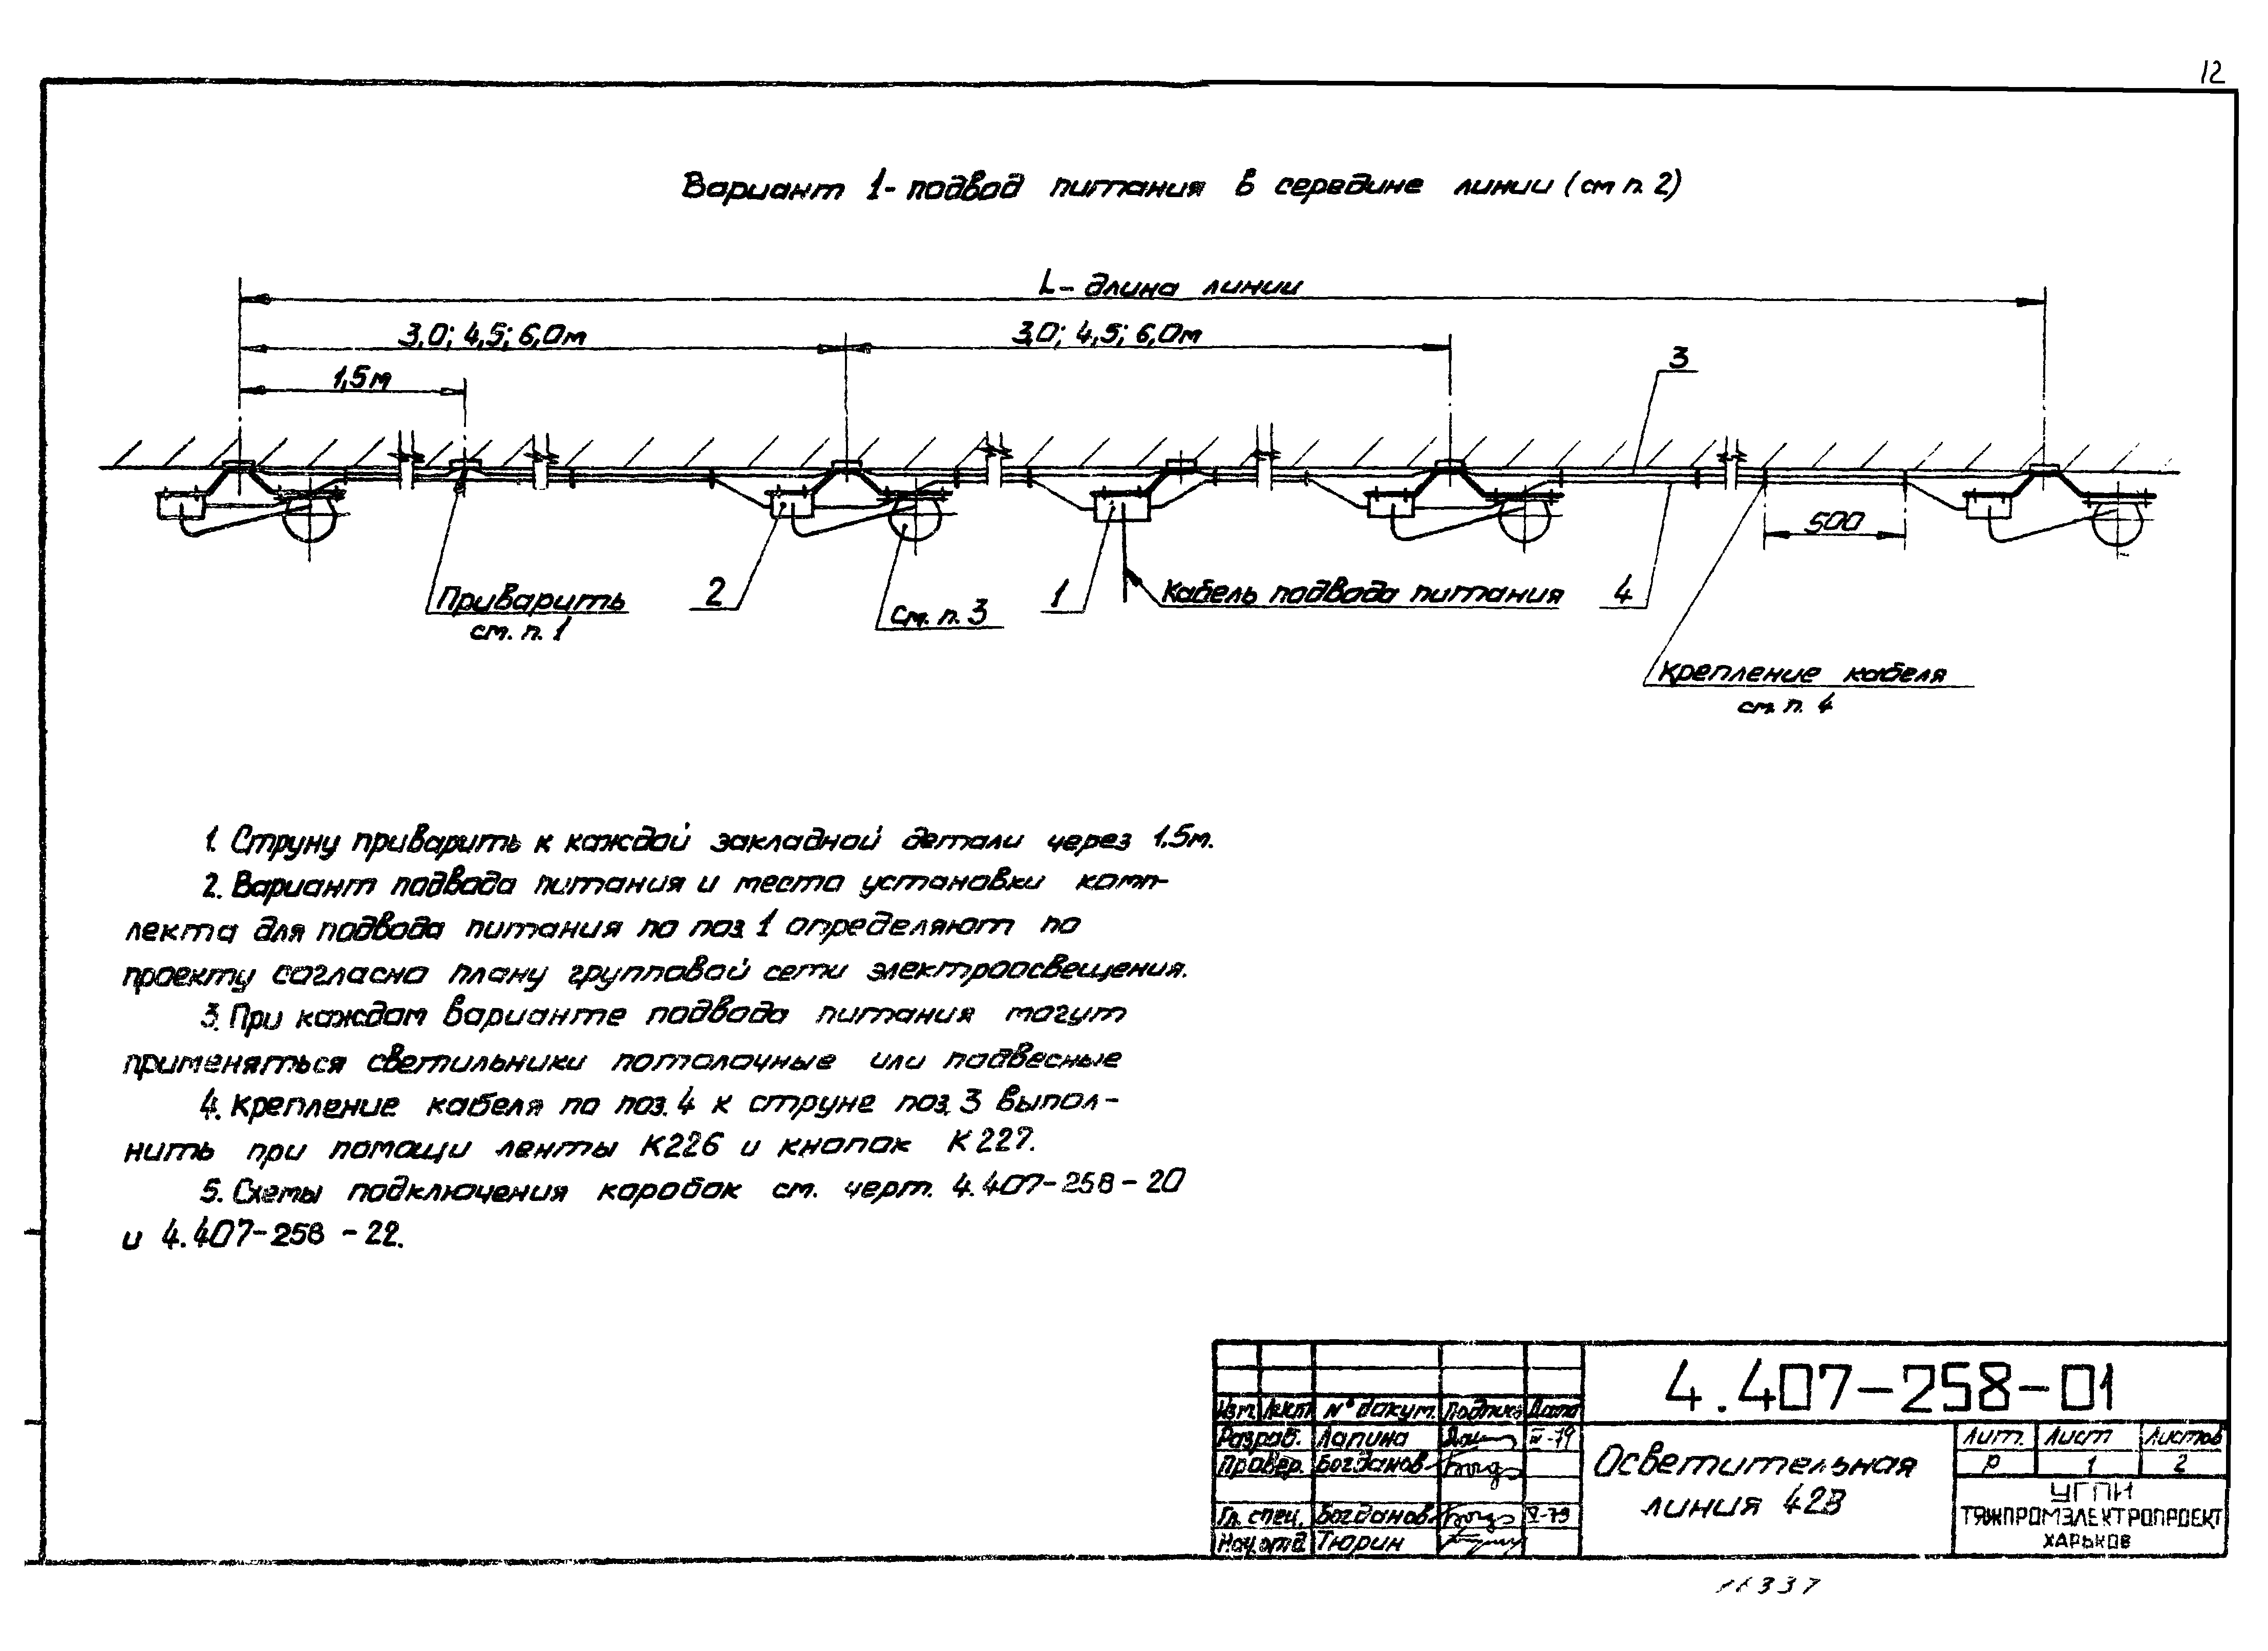 12
Вариант 1- подвод питания в середине линии (см п. 2)
L- длина линии
3,0; 4,5; 6,0м
3,0; 4,5; 6,0м
3
1,5м
500
Приварить
см. п. 1
2
См. п. 3
1
Кабель подвода питания
4
Крепление кабеля
см. п. 4
1. Струну приварить к каждой закладной детали через 1,5м.
2. Вариант подвода питания и место установки комп-
лекта для подвода питания по поз. 1 определяют по
проекту согласно плану групповой сети электроосвещения.
3. При каждом варианте подвода питания могут
применяться светильники потолочные или подвесные
4. Крепление кабеля по поз. 4 к струне поз. 3 выпол-
нить при помощи ленты К226 и кнопок К227.
5. Схемы подключения коробок см. черт. 4.407-258-20
и 4.407-258-22.
4.407-258-01
Изм. Лист № докум. Подпись Дата
Разраб. Лапина IV-79
Провер. Богданов
Гл. спец. Богданов V-79
Нач. отд. Тюрин
Осветительная
линия 42В
Лит. Лист Листов
Р 1 2
УГПИ
ТЯЖПРОМЭЛЕКТРОПРОЕКТ
ХАРЬКОВ